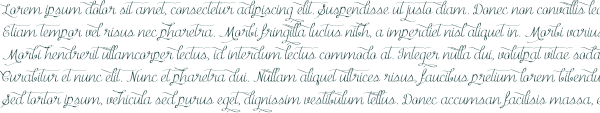 Lorem ipsum dolor sit amet, consectetur adipiscing elit. Suspendisse ut justo diam. Donec non convallis leo
Etiam tempor vel risus nec pharetra. Morbi fringilla luctus nibh, a imperdiet nisl aliquet in. Morbi varius
Morbi hendrerit ullamcorper lectus, id interdum lectus commodo at. Integer nulla dui, volutpat vitae soda
Curabitur et nunc elit. Nunc et pharetra dui. Nullam aliquet ultrices risus, faucibus pretium lorem bibendu
Sed tortor ipsum, vehicula sed purus eget, dignissim vestibulum tellus. Donec accumsan facilisis massa, e